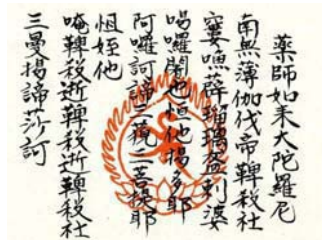 藥師如来大陀羅尼
南無薄伽伐帝鞞殺社
窶嚕薜琉璃盋剌婆
喝囉闍也怛他揭多耶
阿囉訶諦三藐三菩提耶
怛姪他
唵鞞殺逝鞞殺逝鞞殺社
三曼揭諦莎訶